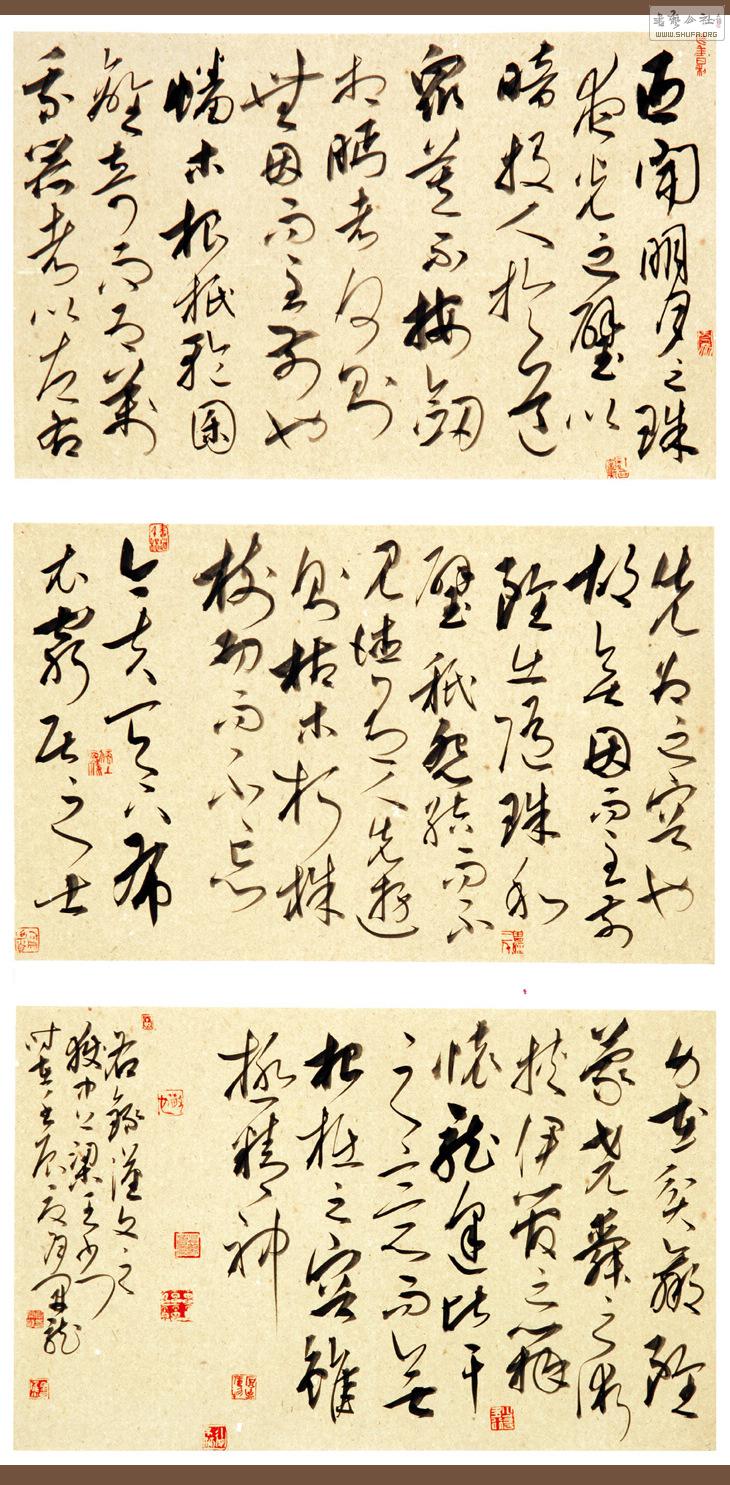 書藝公社
WWW.SHUFA.ORG
臣聞明月之珠
夜光之璧以
暗投人於道
衆莫不按劍
相眄者何則
無因而至前也
蟠木根柢輪囷
離奇而為萬
乘器者以左右
先為之容也
故無因而至前
雖出隨珠和
璧祇怨結而不
見德有人先游
則枯木朽株
樹功而不忘
今夫天下布
衣窮居之士
身在貧羸雖
蒙堯舜之術
挾伊管之辯
懷龍逢比干
之意而無
根柢之容雖
極精神
右錄漢文之
獄中上梁王書